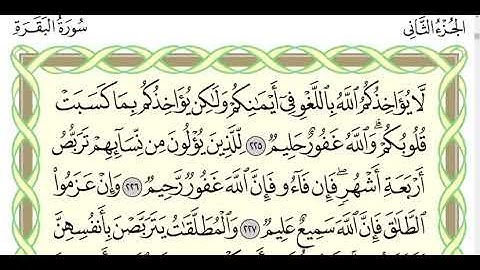 الجُزْءُ الثَّانِي
سُورَةُ البَقَرَةِ
لَّا يُؤَاخِذُكُمُ اللَّهُ بِاللَّغْوِ فِي أَيْمَانِكُمْ وَلَٰكِن يُؤَاخِذُكُم بِمَا كَسَبَتْ
قُلُوبُكُمْ ۗ وَاللَّهُ غَفُورٌ حَلِيمٌ ٢٢٥ لِّلَّذِينَ يُؤْلُونَ مِن نِّسَائِهِمْ تَرَبُّصُ
أَرْبَعَةِ أَشْهُرٍ ۖ فَإِن فَاءُو فَإِنَّ اللَّهَ غَفُورٌ رَّحِيمٌ ٢٢٦ وَإِنْ عَزَمُوا
الطَّلَاقَ فَإِنَّ اللَّهَ سَمِيعٌ عَلِيمٌ ٢٢٧ وَالْمُطَلَّقَاتُ يَتَرَبَّصْنَ بِأَنفُسِهِنَّ